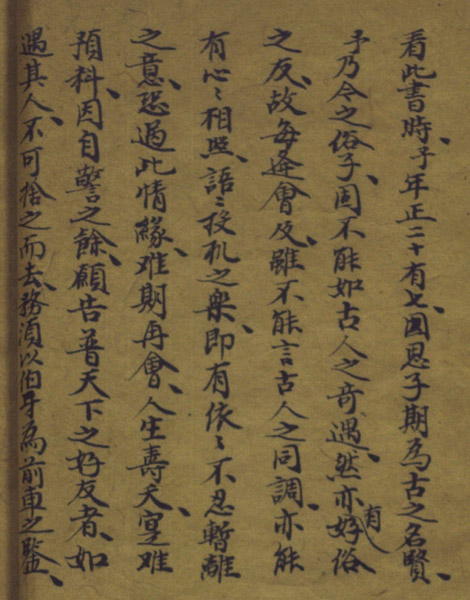 看此書時、予年正二十有七、因思子期為古之名賢、
予乃今之俗子、固不能如古人之奇遇、然亦有好俗
之友、故每逢會及、雖不能言古人之同調、亦能
有心〻相照、語〻投机之樂、即有依〻不忍暫離
之意、恐過此情緣、难期再會、人生壽夭、寔难
預科、因自警之餘、願告普天下之好友者、如
遇其人、不可捨之而去、務須以伯牙為前車之鑒、